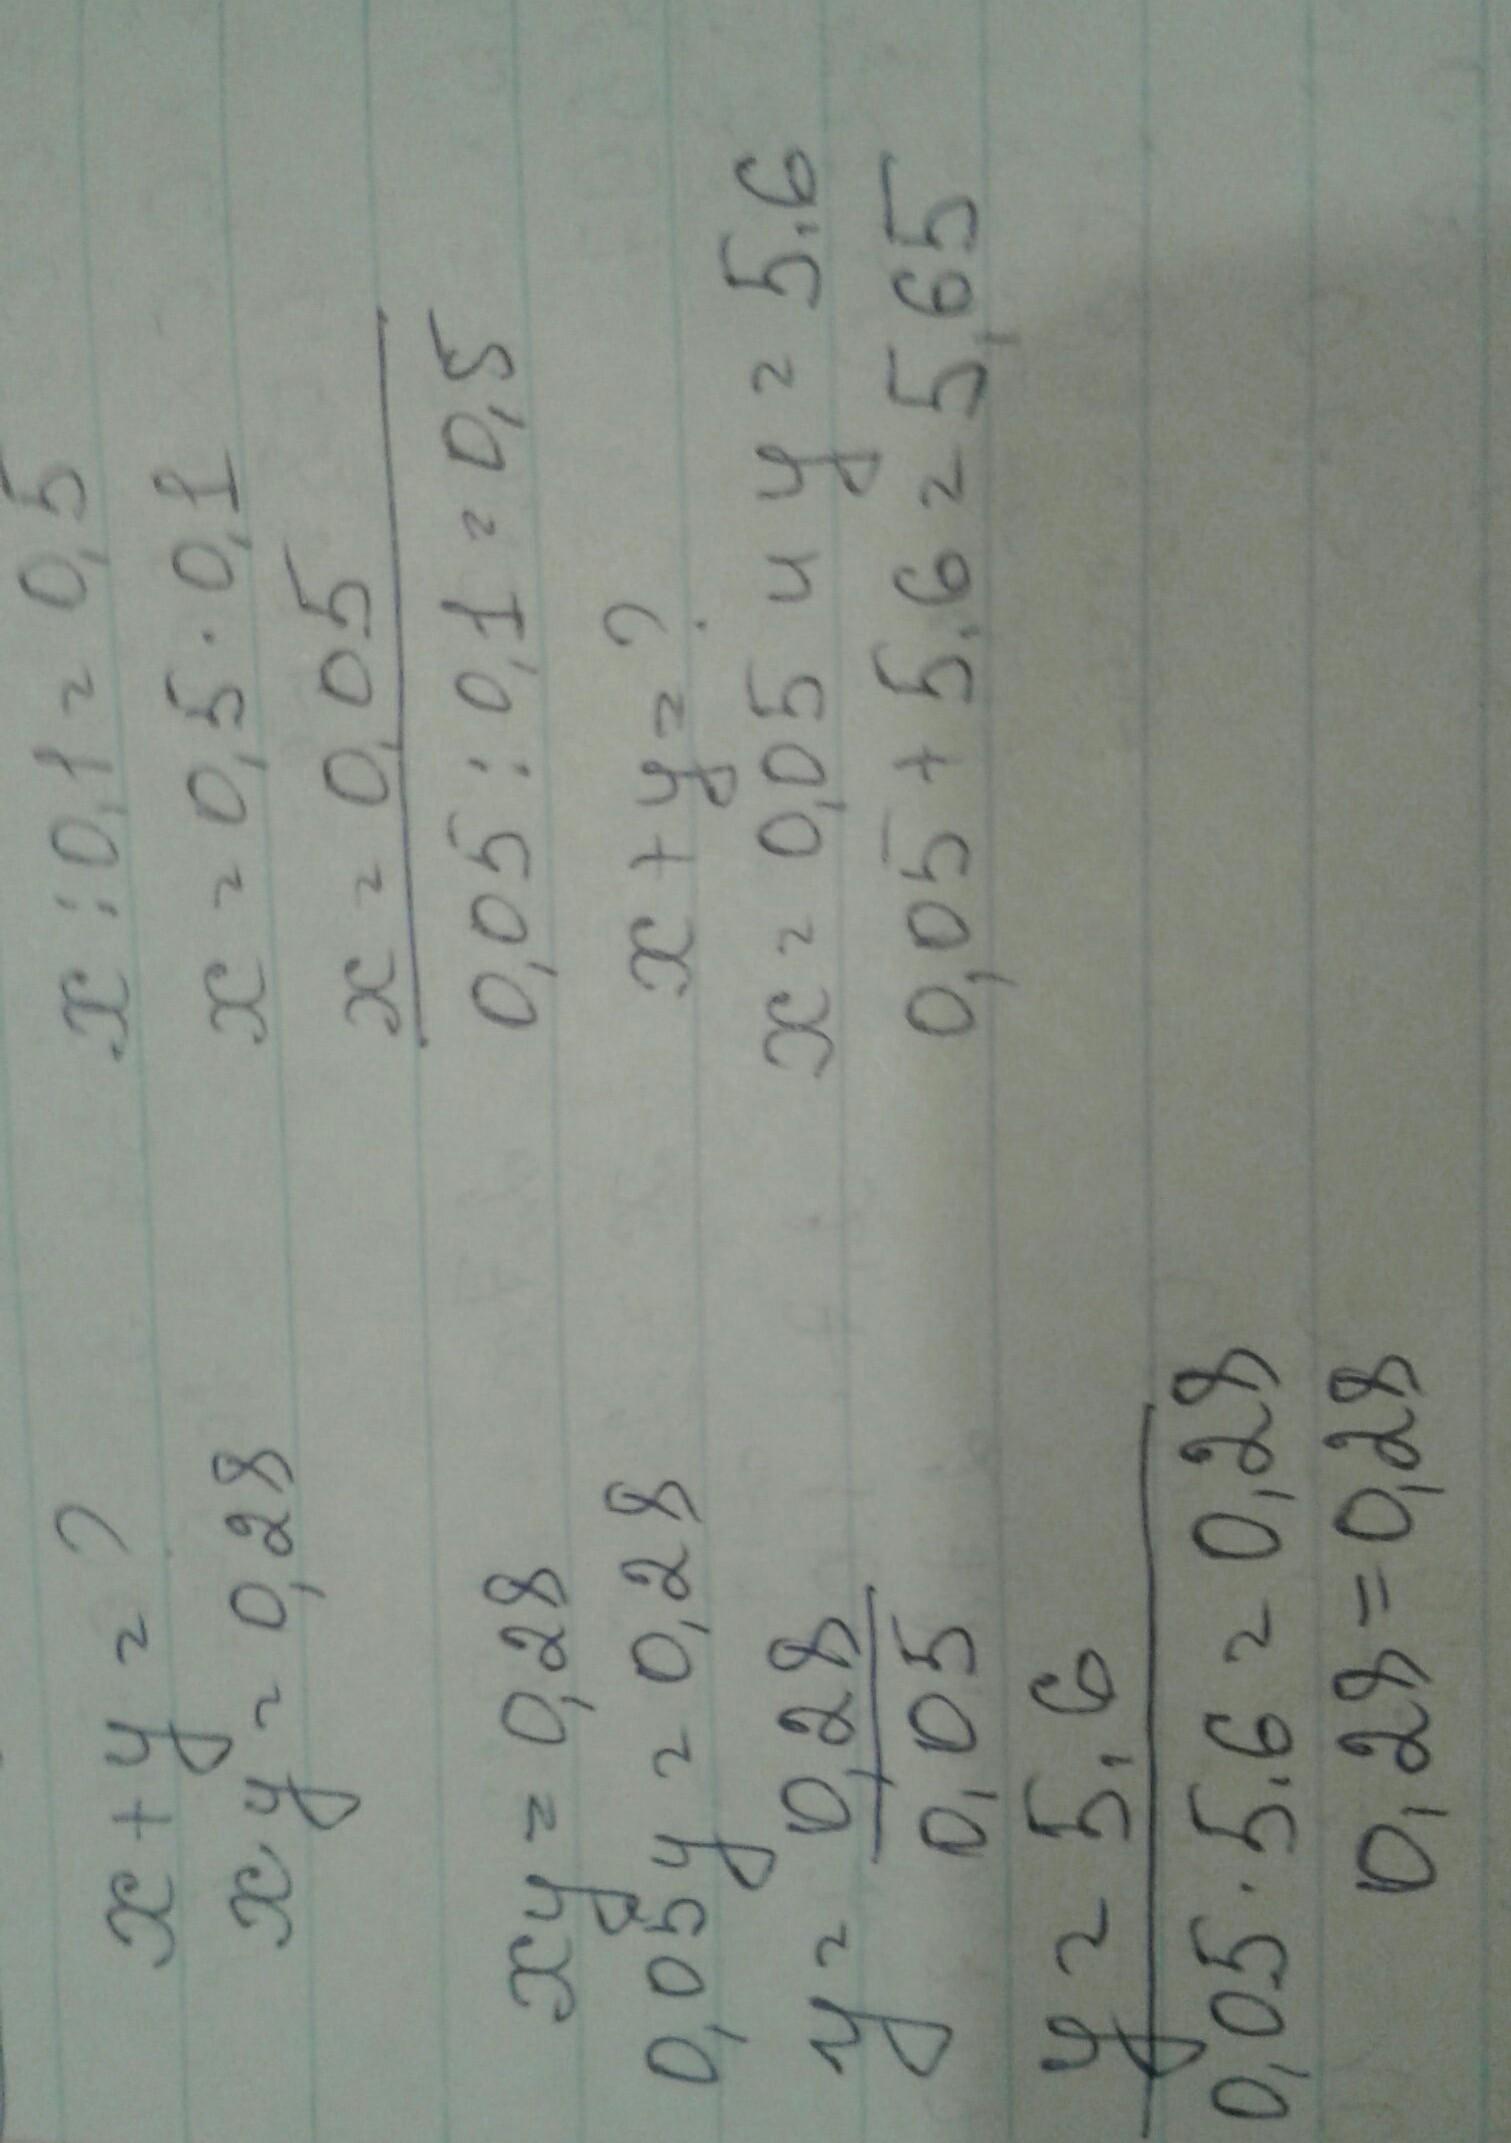 x + y = ?
xy = 0,28
xy = 0,28
0,05y = 0,28
y = 0,28
0,05
y = 5.6
0,05 · 5.6 = 0,28
0,28 = 0,28
x : 0,1 = 0,5
x = 0,5 · 0,1
x = 0,05
0,05 : 0,1 = 0,5
x + y = ?
x = 0,05 и y = 5.6
0,05 + 5.6 = 5,65